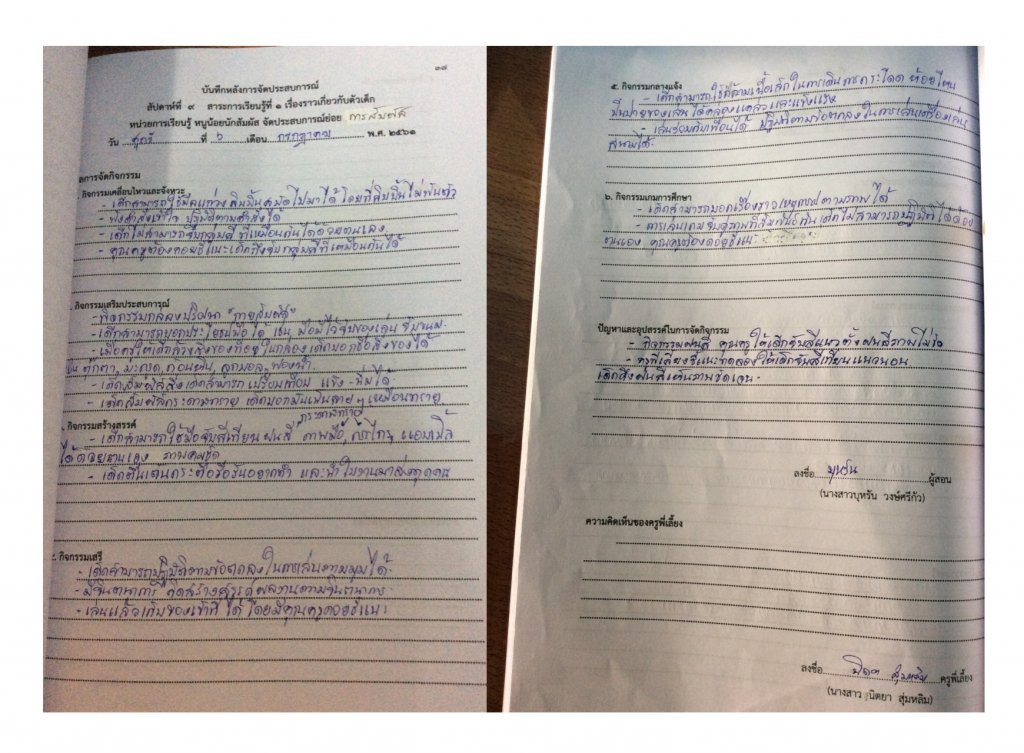 ๓๗
บันทึกหลังการจัดประสบการณ์
สัปดาห์ที่ ๙ สาระการเรียนรู้ที่ ๑ เรื่องราวเกี่ยวกับตัวเด็ก
หน่วยการเรียนรู้ หนูน้อยนักสัมผัส จัดประสบการณ์ย่อย การสัมผัส
วัน ศุกร์ ที่ ๖ เดือน กรกฎาคม พ.ศ. ๒๕๖๑
ผลการจัดกิจกรรม
กิจกรรมเคลื่อนไหวและจังหวะ
- เด็กสามารถใช้ ริบบิ้น ไปมาได้ โดยที่ริบบิ้นไม่พันตัว
- ฟังคำสั่งเข้าใจ ปฏิบัติตามคำสั่งได้
- เด็กไม่สามารถจับกลุ่มสี ที่เหมือนกันได้ด้วยตนเอง
- คุณครูต้องคอยชี้แนะเด็กถึงจับกลุ่มสีที่เหมือนกันได้
กิจกรรมเสริมประสบการณ์
- กิจกรรมกล่องปริศนา "กายสัมผัส"
- เด็กสามารถบอกประโยชน์มือได้ เช่น มือไว้จับของเล่น จับขนม
- เมื่อครูให้เด็กล้วงสิ่งของที่อยู่ในกล่อง เด็กบอกชื่อสิ่งของได้
ตุ๊กตา, มะกรูด, ก้อนหิน, ลูกบอล, ฟองน้ำ
- เด็กสัมผัสสิ่ง เด็กสามารถเปรียบเทียบ แข็ง - นิ่มได้
- เด็กสัมผัสกระดาษทราย เด็กบอกมันเป็นสาย ๆ เหมือนทราย
กิจกรรมสร้างสรรค์
กระดาษทราย
- เด็กสามารถใช้มือจับสีเทียนฝนสี ภาพมือ, ก้อนไก่, แอปเปิ้ล
ได้ด้วยตนเอง ภาพคมชัด
- เด็กตื่นเต้นกระตือรือร้นอยากทำ และนำใบงานมาส่งทุกคน
กิจกรรมเสรี
- เด็กสามารถปฏิบัติตามข้อตกลงในการเล่นตามมุมได้
- มีจินตนาการ คิดสร้างสรรค์ผลงานตามจินตนาการ
- เล่นแล้วเก็บของเข้าที่ได้ โดยมีคุณครูคอยชี้แนะ
๕. กิจกรรมกลางแจ้ง
- เด็กสามารถใช้กล้ามเนื้อเล็กในการเดิน การกระโดด ห้อยโหน
ปีนป่ายของเล่นได้คล่องแคล่วและแข็งแรง
- เล่นร่วมกับเพื่อนได้ ปฏิบัติตามข้อตกลงในการเล่นเครื่องเล่น
สนามได้
๖. กิจกรรมเกมการศึกษา
- เด็กสามารถบอกเรื่องราวเหตุการณ์ตามภาพได้
- การเล่นเกมจับคู่ภาพที่สัมพันธ์กัน เด็กไม่สามารถปฏิบัติได้ด้วย
ตนเอง คุณครูต้องคอยชี้แนะ
ปัญหาและอุปสรรคในการจัดกิจกรรม
- กิจกรรมฝนสี คุณครูให้เด็กจับสีแนวตั้งฝนสีภาพไม่ชัด
- ครูพี่เลี้ยงชี้แนะทดลองให้เด็กจับสีเทียนแนวนอน
เด็กถึงฝนสีเห็นภาพชัดเจน
ลงชื่อ บุหรัน ผู้สอน
(นางสาวบุหรัน วงษ์ศรีกัว)
ความคิดเห็นของครูพี่เลี้ยง
ลงชื่อ นิตยา สุ่มหลิม ครูพี่เลี้ยง
(นางสาว นิตยา สุ่มหลิม)